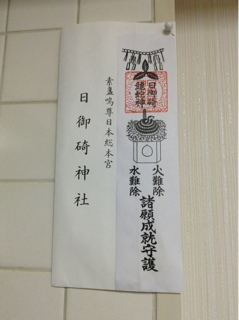 日御碕
諸願成就守護
火難除
水難除
素盞嗚尊日本総本宮
日御碕神社